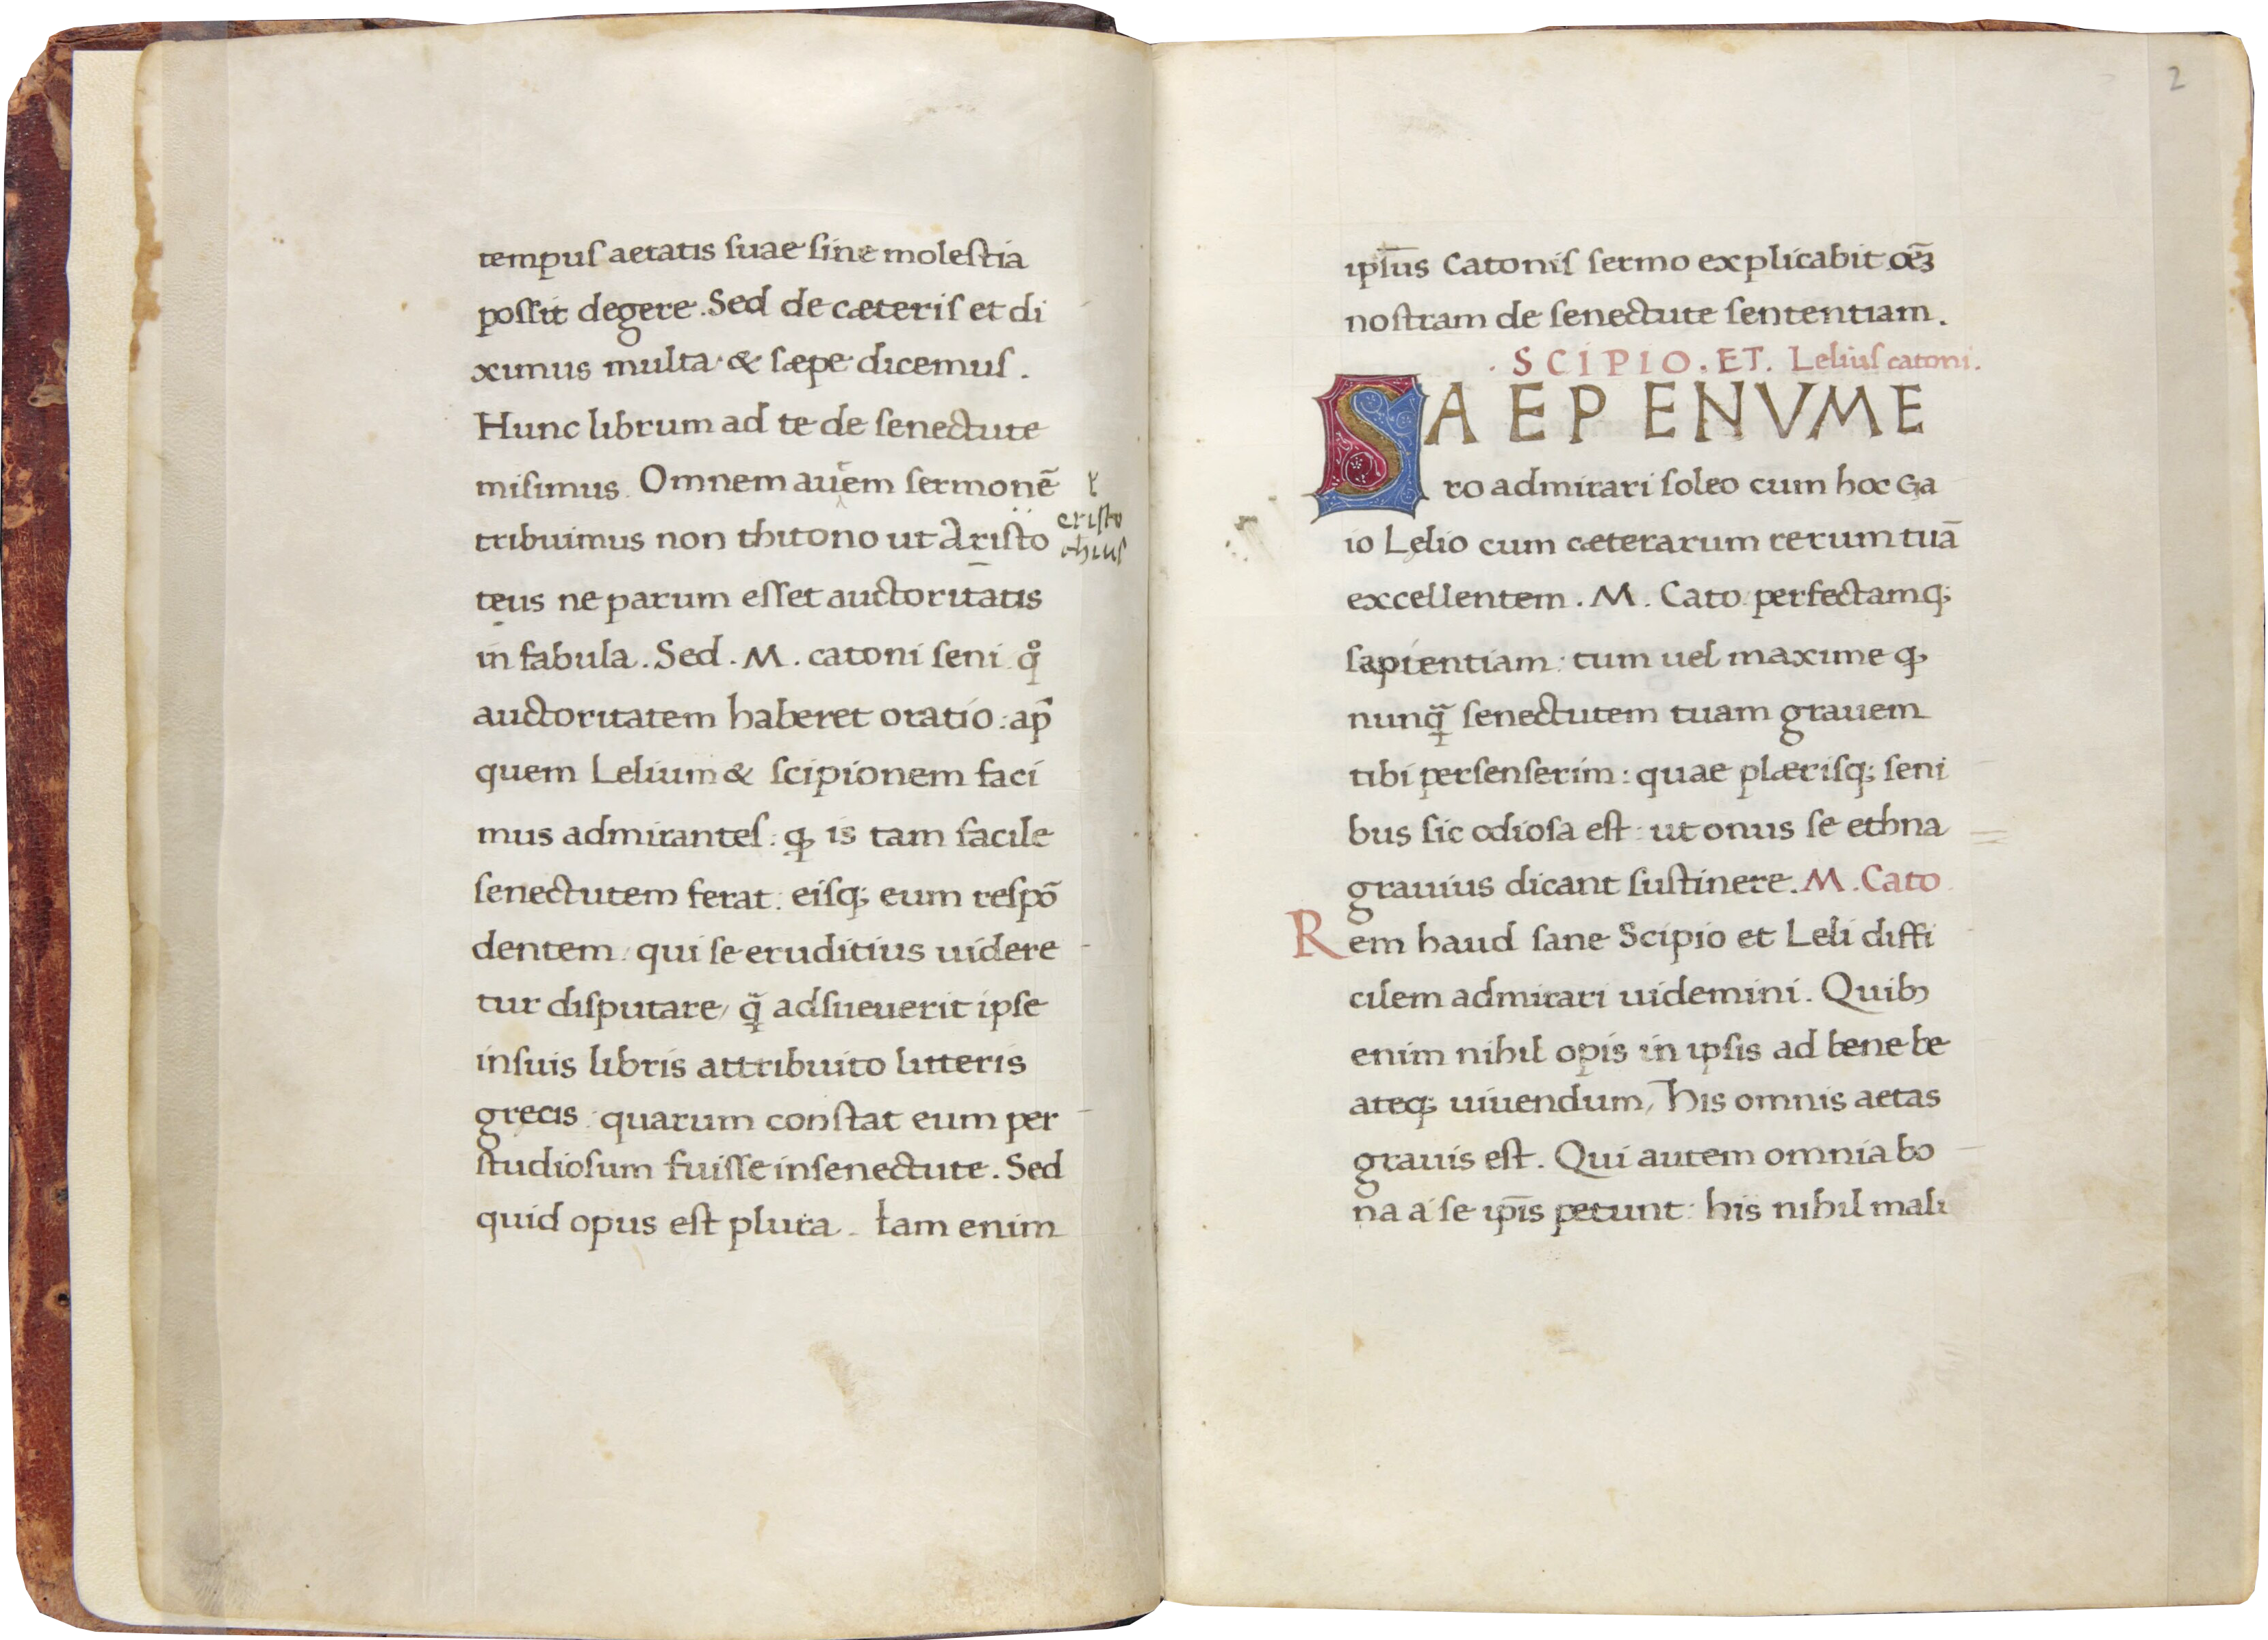 tempuſ aetatis ſuae ſine moleſtia
poſſit degere. Sed de cæteriſ et di
ximus multa · & ſæpe dicemuſ.
Hunc librum ad te de ſenectute
miſimus. Omnem auem ſermonē
tribuimus non thitono ut Ariſto
eriſto
chiuſ
teus ne parum eſſet auctoritatis
in fabula. Sed. M. catoni ſeni. qͦ
auctoritatem haberet oratio: ap̄
quem Lelium & ſcipionem faci
mus admiranteſ: ꝙ is tam facile
ſenectutem ferat: eiſq; eum reſpō
dentem, qui ſe eruditius uidere
tur diſputare, q̄ adſueuerit ipſe
inſuis libris attribuito litteris
grecis: quarum conſtat eum per
ſtudioſum fuiſſe inſenectute. Sed
quid opus eſt plura. Iam enim
2
ipſ̄us Catoniſ ſermo explicabit oēʒ
noſtram de ſenectute ſententiam.
. SCIPIO. ET. Leliuſ catoni.
SAEPENVME
ro admirari ſoleo cum hoc Ga
io Lelio cum cæterarum rerum tuā
excellentem. M. Cato perfectamq;
ſapientiam: tum uel maxime ꝙ
nunq̄ ſenectutem tuam grauem
tibi perſenſerim: quae plæriſq; ſeni
bus ſic odioſa eſt: ut onus ſe ethna
grauius dicant ſuſtinere. M. Cato.
Rem haud ſane Scipio et Leli diffi
cilem admirari uidemini. Quibꝫ
enim nihil opis in ipſis ad bene be
ateq; uiuendum, his omnis aetas
grauis eſt. Qui autem omnia bo
na a ſe ip̄is petunt: his nihil mali